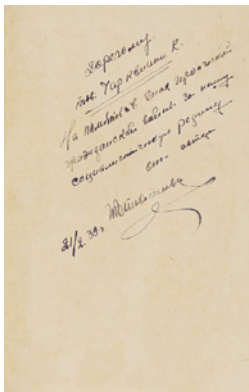 Дорогому.
тов. Чарквиани К.
На память в дни героической
гражданской войны за нашу
социалистическую родину
от автора
21/2.39 г.